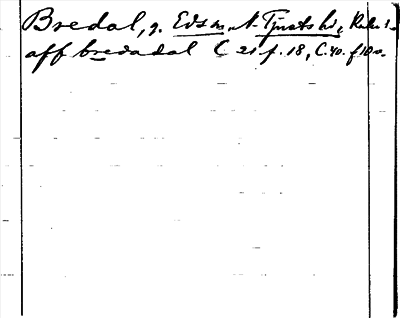 Bredal, g. Eds sn, N. Tjusts hd, Kalm. l.
aff bredadal C 21 f. 18, C. 40. f 10 v.